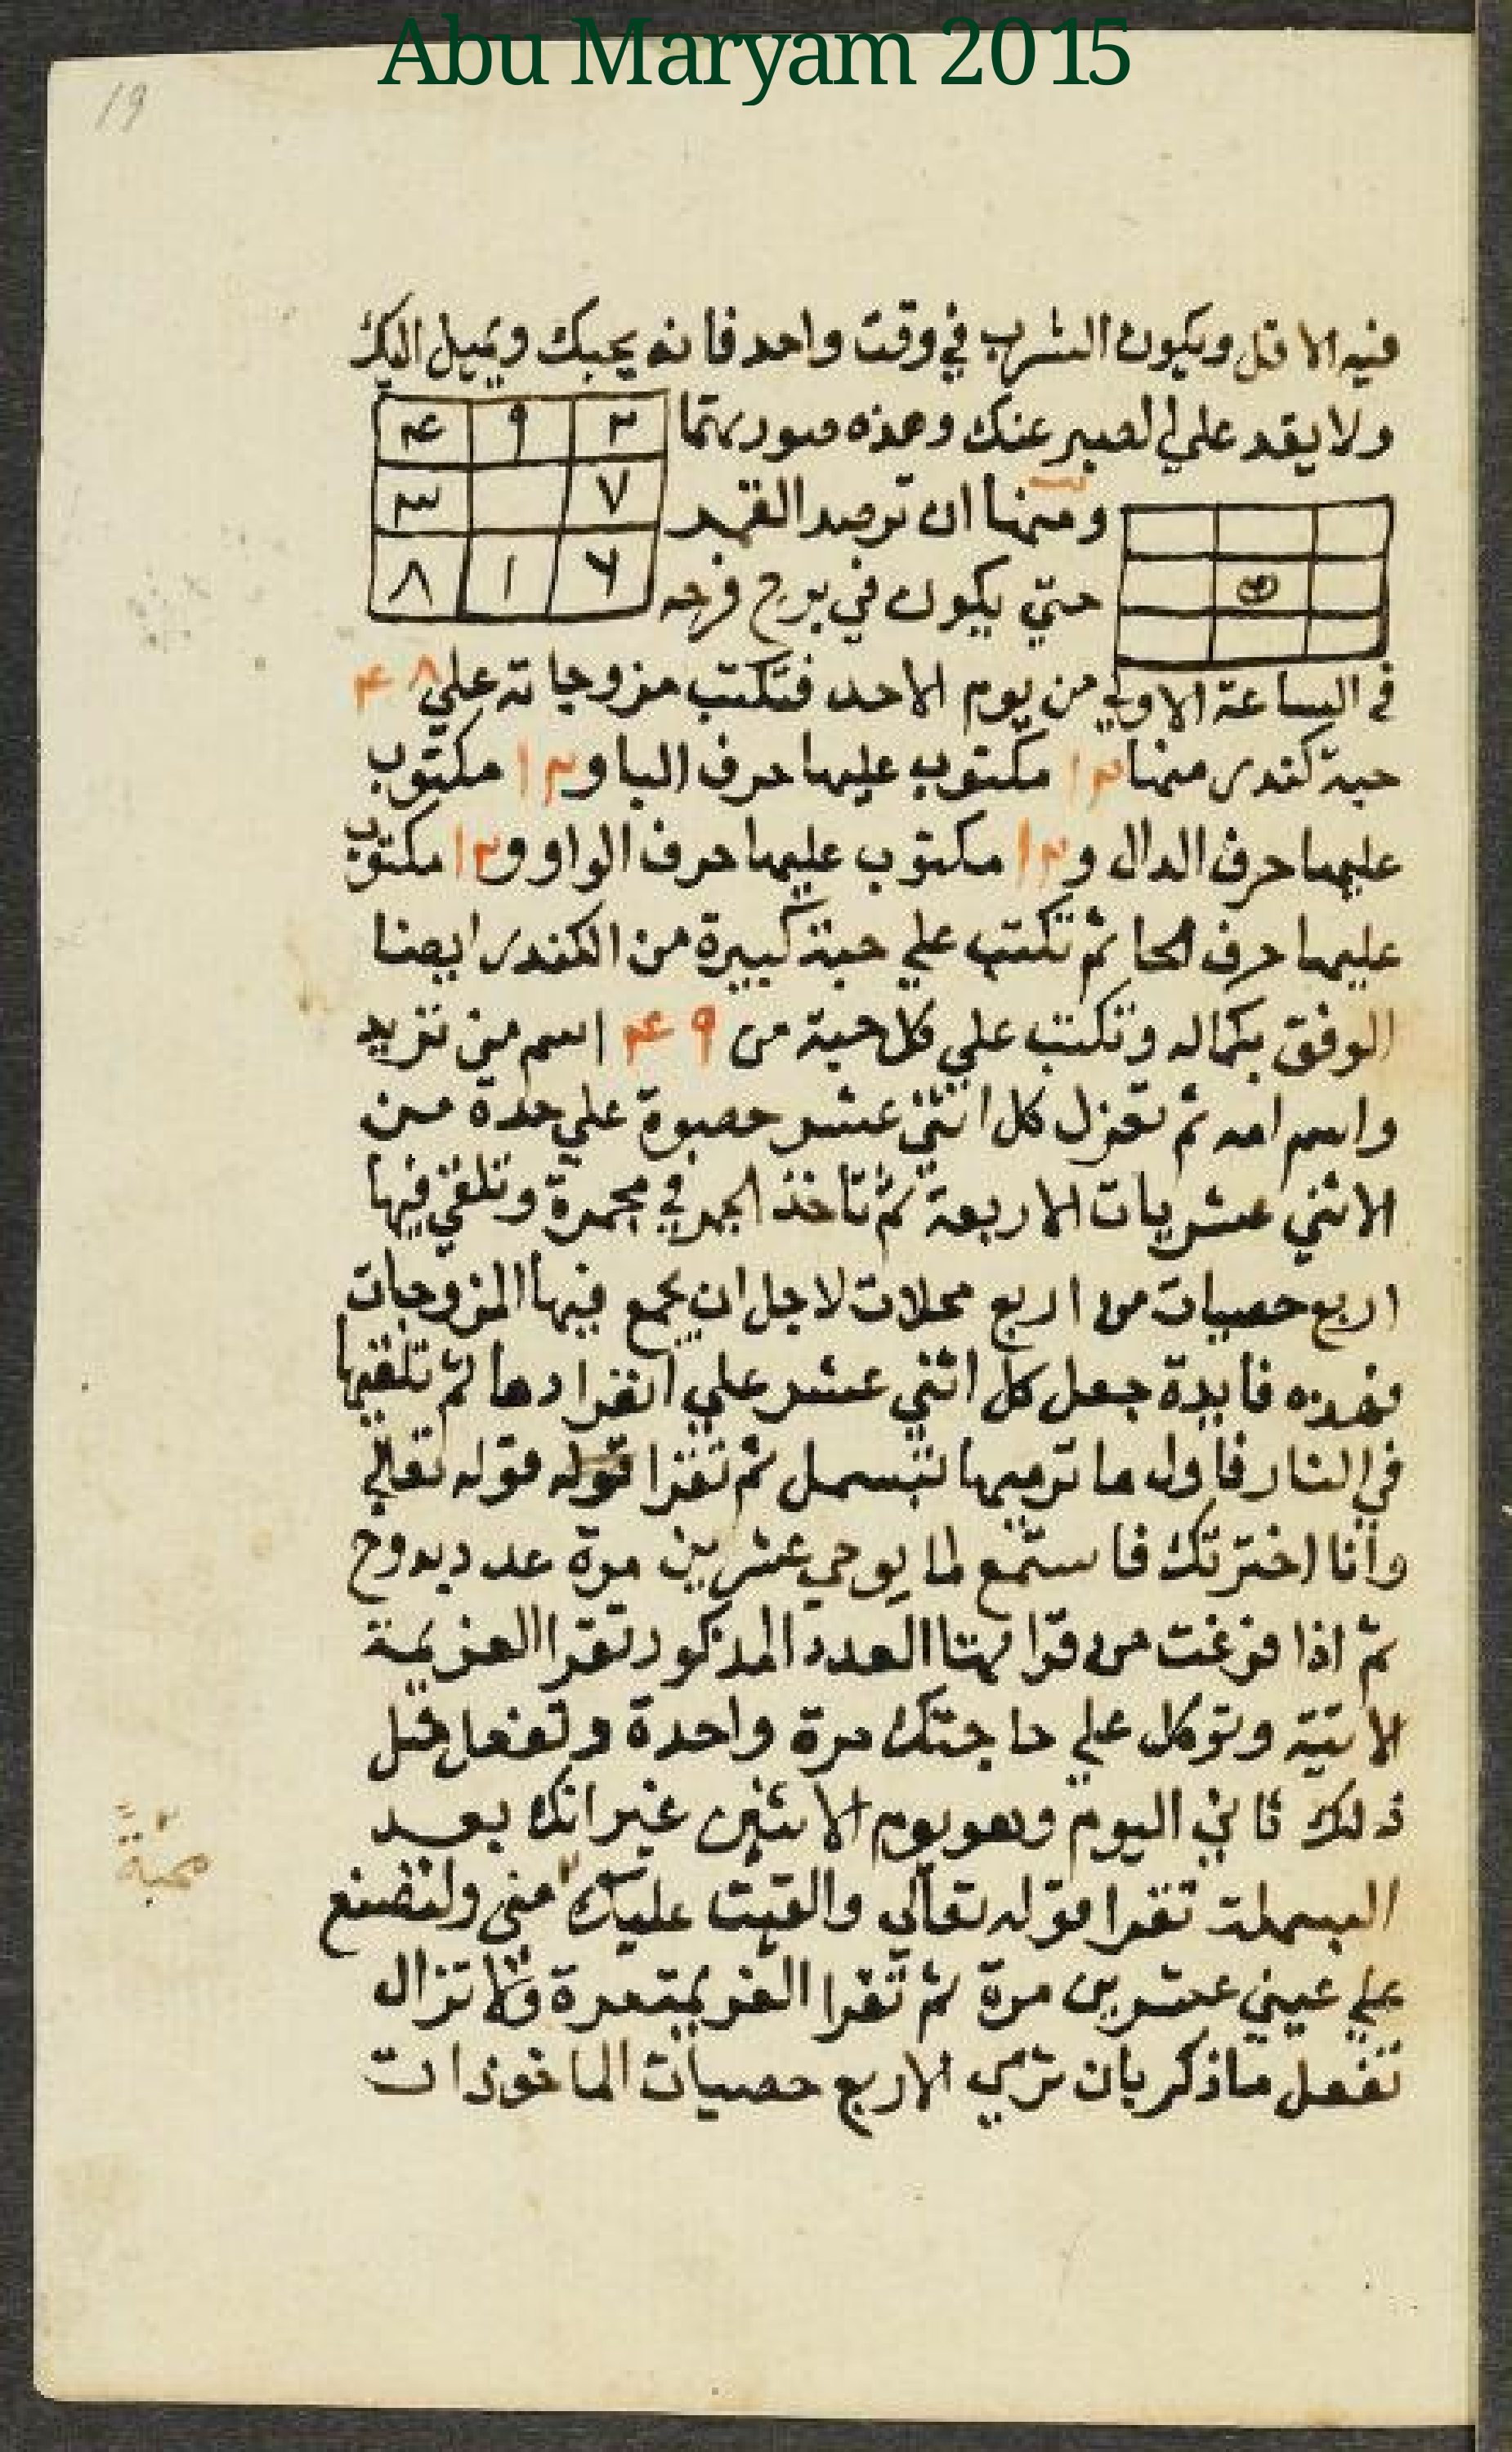 Abu Maryam 2015
19
فيه الاقل ويكون الشرب في وقت واحد فانه يحبك ويميل اليك
ولا يقد علي الصبر عنك وهذه صورتهما
٢ ٩ ٤
٧ ٣
٦ ١ ٨
٥
ومنها ان ترصد القمر
حتي يكون في برج فرحه
في الساعة الاولي من يوم الاحد فتكتب مزوجاته علي ٤٨
حبة كندر منها ١٢ مكتوب عليها حرف البا و١٢ مكتوب
عليها حرف الدال و١٢ مكتوب عليها حرف الواو و١٢ مكتوب
عليها حرف الحا ثم تكتب علي حبة كبيرة من الكندر ايضا
الوفق بكماله وتكتب علي كل حبة من ٤٩ اسم من تريد
واسم امه ثم تعزل كل اثني عشر حصوة علي حدة من
الاثني عشريات الاربعة ثم تاخذ الجمر في مجمرة وتلقي فيها
اربع حصيات من اربع محلات لاجل ان يجمع فيها المزوجات
فهذه فايدة جعل كل اثني عشر علي انفرادها ثم تلقيها
في النار فاول ما ترميها تبسمل ثم تقرا قوله قوله تعالي
وانا اخترتك فاستمع لما يوحي عشرين مرة عدد بدوح
ثم اذا فرغت من قراتها العدد المذكور تقرا العزيمة
الاتية وتوكل علي حاجتك مرة واحدة وتفعل مثل
ذلك ثاني اليوم وهو يوم الاثنين غير انك بعد
البسملة تقرا قوله تعالي والقيت عليك ٢ مني ولتصنع
علي عيني عشرين مرة ثم تقرا العزيمة مرة ولا تزال
تفعل ما ذكر بان ترمي الاربع حصيات الماخوذات
٢
محبة